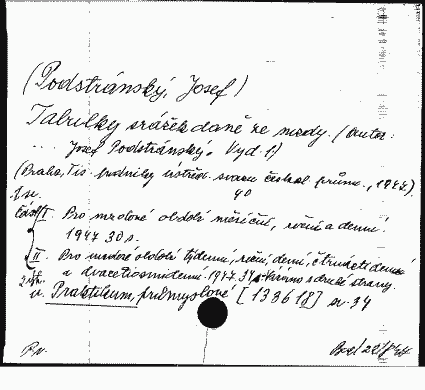 (Podstránský, Josef)
Tabulky srážek daně ze mzdy. (Autor:
Josef Podstránský. Vyd. 1)
(Praha, Tis. podniky ústřed. svazu českosl. průmr., 1947).
4°
část I. Pro mzdové období měsíční, roční a denní.
1947. 30 s.
II. Pro mzdové období týdenní, roční, denní, čtrnáctidenní
a dvacetiosmidenní. 1947. 34 s.
strany.
Praktikum průmyslové [133618] sv. 34